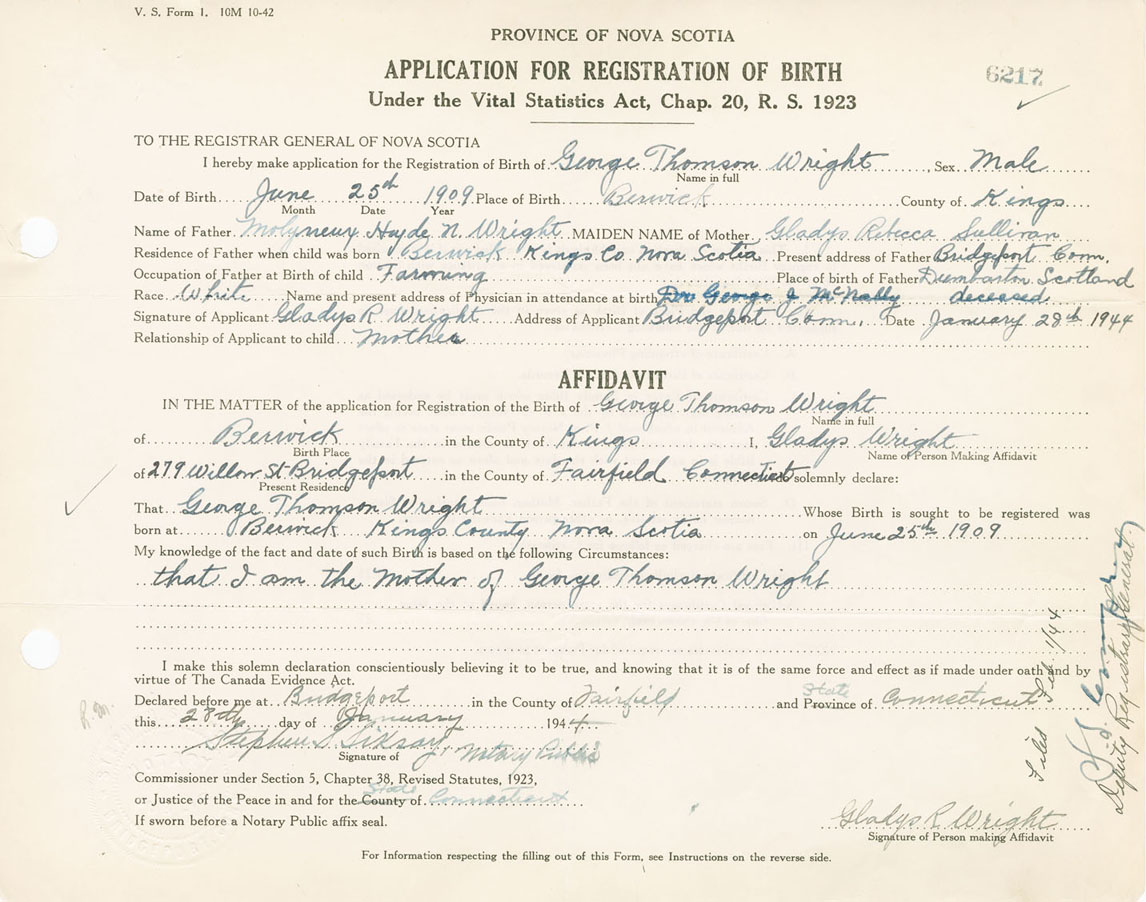 V. S. Form 1. 10M 10-42
PROVINCE OF NOVA SCOTIA
APPLICATION FOR REGISTRATION OF BIRTH
6217
Under the Vital Statistics Act, Chap. 20, R. S. 1923
TO THE REGISTRAR GENERAL OF NOVA SCOTIA
I hereby make application for the Registration of Birth of George Thomson Wright Sex Male
Name in full
Date of Birth June 25th 1909 Place of Birth Berwick County of Kings
Month Date Year
Name of Father Molyneux Hayde N. Wright MAIDEN NAME of Mother Gladys Rebecca Sullivan
Residence of Father when child was born Berwick Kings Co Nova Scotia Present address of Father Bridgeport Conn.
Occupation of Father at Birth of child Farming Place of birth of Father Dumbarton Scotland
Race White Name and present address of Physician in attendance at birth Dr. George J McNally deceased
Signature of Applicant Gladys R Wright Address of Applicant Bridgeport Conn. Date January 28th 1944
Relationship of Applicant to child Mother
AFFIDAVIT
IN THE MATTER of the application for Registration of the Birth of George Thomson Wright
Name in full
of Berwick in the County of Kings I, Gladys Wright
Birth Place Name of Person Making Affidavit
of 279 Willow St Bridgeport in the County of Fairfield Connecticut solemnly declare:
Present Residence
That George Thomson Wright Whose Birth is sought to be registered was
born at Berwick Kings County Nova Scotia on June 25th 1909
My knowledge of the fact and date of such Birth is based on the following Circumstances:
that I am the Mother of George Thomson Wright
I make this solemn declaration conscientiously believing it to be true, and knowing that it is of the same force and effect as if made under oath and by
virtue of The Canada Evidence Act.
Declared before me at Bridgeport in the County of Fairfield and Province of State Connecticut
this 28th day of January 1944
Stephen Notary Public
Signature of
Commissioner under Section 5, Chapter 38, Revised Statutes, 1923,
or Justice of the Peace in and for the County State of Connecticut
If sworn before a Notary Public affix seal.
Gladys R Wright
Signature of Person making Affidavit
For Information respecting the filling out of this Form, see Instructions on the reverse side.
R.M.
Filed Feb 1/44
Deputy Registrar General